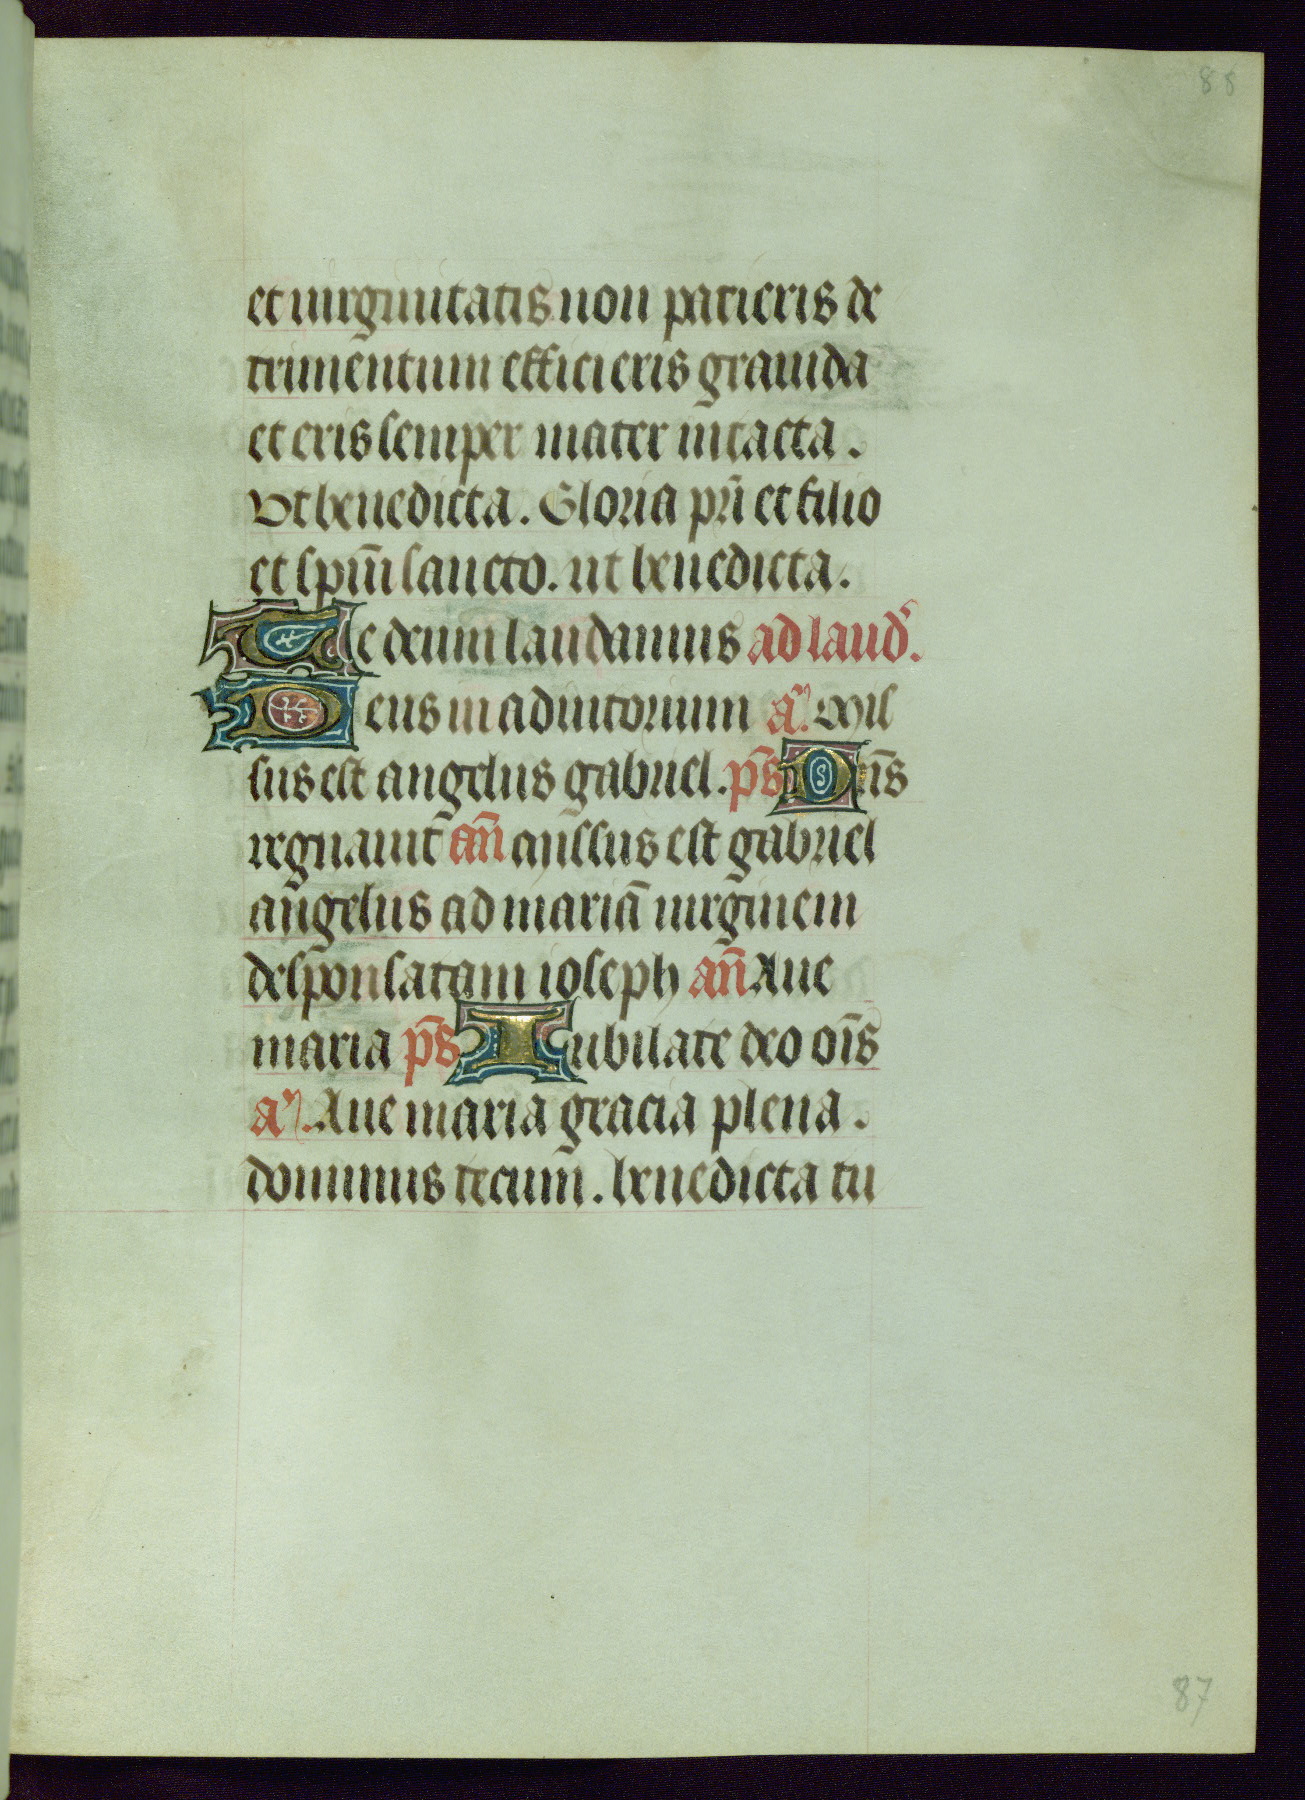 88
et uirginitatis non pacieris de
trimentum efficieris grauida
et eris semper mater intacta.
Ut benedicta. Gloria pr̄i et filio
et sp̄m̄ sancto. ut benedicta.
Te deum laudamus ad laud'.
Deus in adiutorium a'. Mis
sus est angelus gabriel. p̄s Dn̄s
regnauit an̄ Missus est gabriel
angelus ad mariā uirginem
desponsatam ioseph an̄ Aue
maria p̄s Iubilate deo oīs
a'. Aue maria gracia plena.
dominus tecum. benedicta tu
87